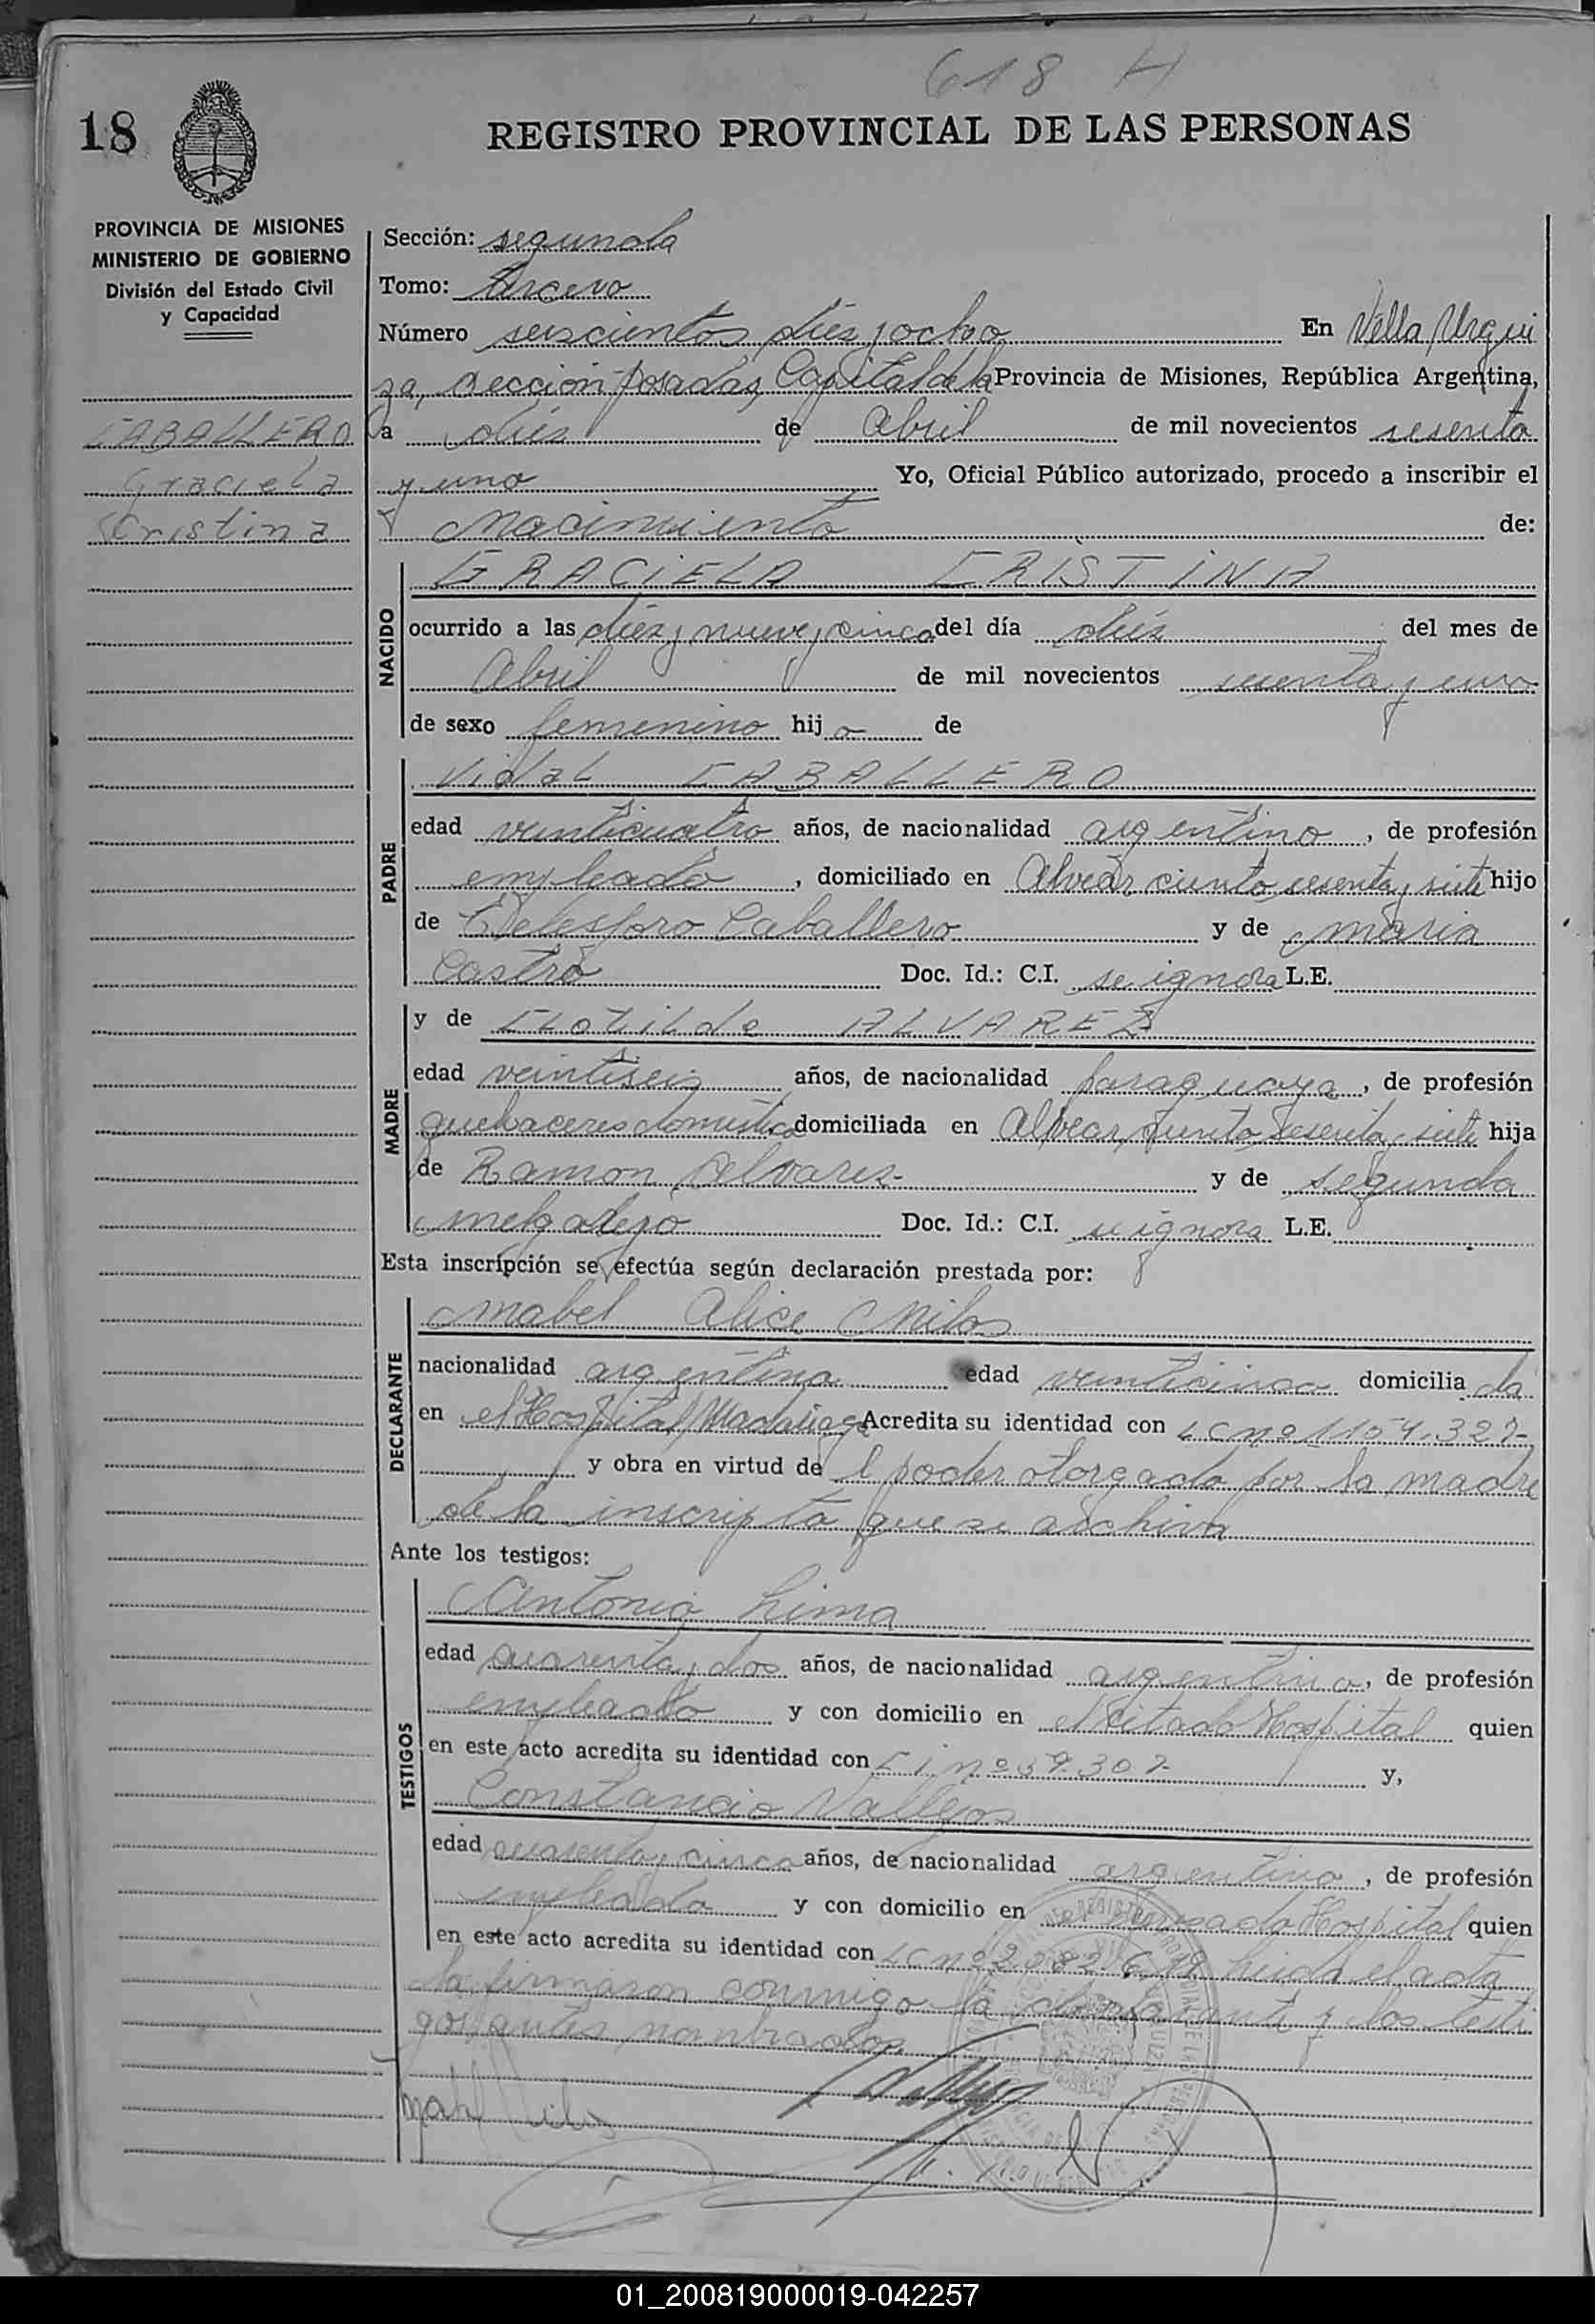 618 H
18
REGISTRO PROVINCIAL DE LAS PERSONAS
PROVINCIA DE MISIONES
MINISTERIO DE GOBIERNO
División del Estado Civil
y Capacidad
CABALLERO
Graciela
Cristina
Sección: segunda
Tomo: tercero
Número seiscientos diez y ocho En Villa Urqui
za, sección posadas, Capital de la Provincia de Misiones, República Argentina,
a diés de Abril de mil novecientos sesenta
y uno Yo, Oficial Público autorizado, procedo a inscribir el
Nacimiento de:
NACIDO
GRACIELA CRISTINA
ocurrido a las diez y nueve y cinco del día diés del mes de
Abril de mil novecientos sesenta y uno
de sexo femenino hija de
PADRE
Vidal CABALLERO
edad veinticuatro años, de nacionalidad argentino, de profesión
empleado, domiciliado en Alvear ciento sesenta y siete hijo
de Telesforo Caballero y de maria
Castro Doc. Id.: C.I. se ignora L.E.
MADRE
y de Clotilde ALVAREZ
edad veintiseis años, de nacionalidad paraguaya, de profesión
quehaceres domestico domiciliada en Alvear ciento sesenta y siete hija
de Ramon Alvarez y de segunda
melgarejo Doc. Id.: C.I. se ignora L.E.
Esta inscripción se efectúa según declaración prestada por:
DECLARANTE
Mabel Alice Milos
nacionalidad argentina edad veinticinco domiciliada
en el Hospital Madariaga Acredita su identidad con LC nº 1104.327-
y obra en virtud del poder otorgado por la madre
de la inscripta que se archiva
Ante los testigos:
TESTIGOS
Antonio Lima
edad cuarenta y dos años, de nacionalidad argentino, de profesión
empleado y con domicilio en el citado Hospital quien
en este acto acredita su identidad con C i nº 59.307- y,
Constancio Vallejos
edad cuarenta y cinco años, de nacionalidad argentino, de profesión
empleado y con domicilio en el Hospital quien
en este acto acredita su identidad con Leida el acta
la firmaron conmigo la declarante y los testi
gos antes nombrados
01_200819000019-042257